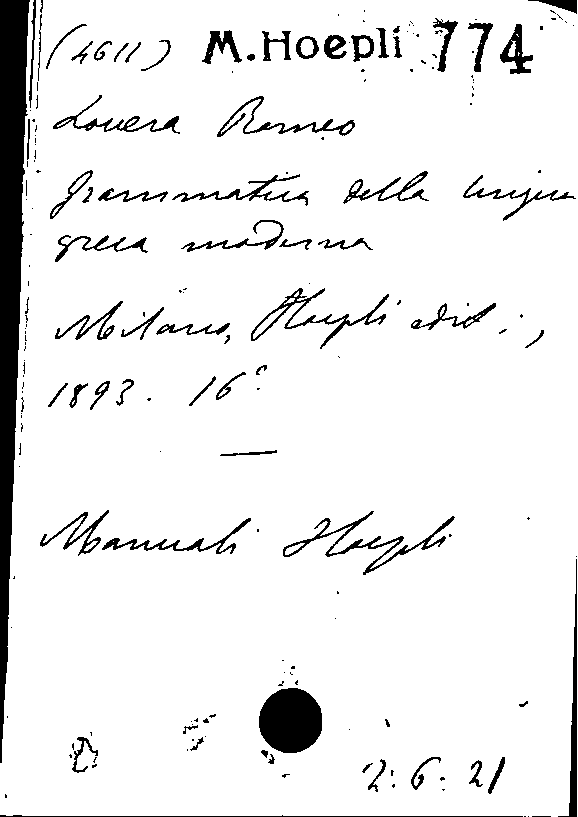 (4611) M. Hoepli 774
Lovera Romeo
Grammatica della lingua
greca moderna
Milano, Hoepli edit.,
1893. 16°
—
Manuali Hoepli
2.6.21